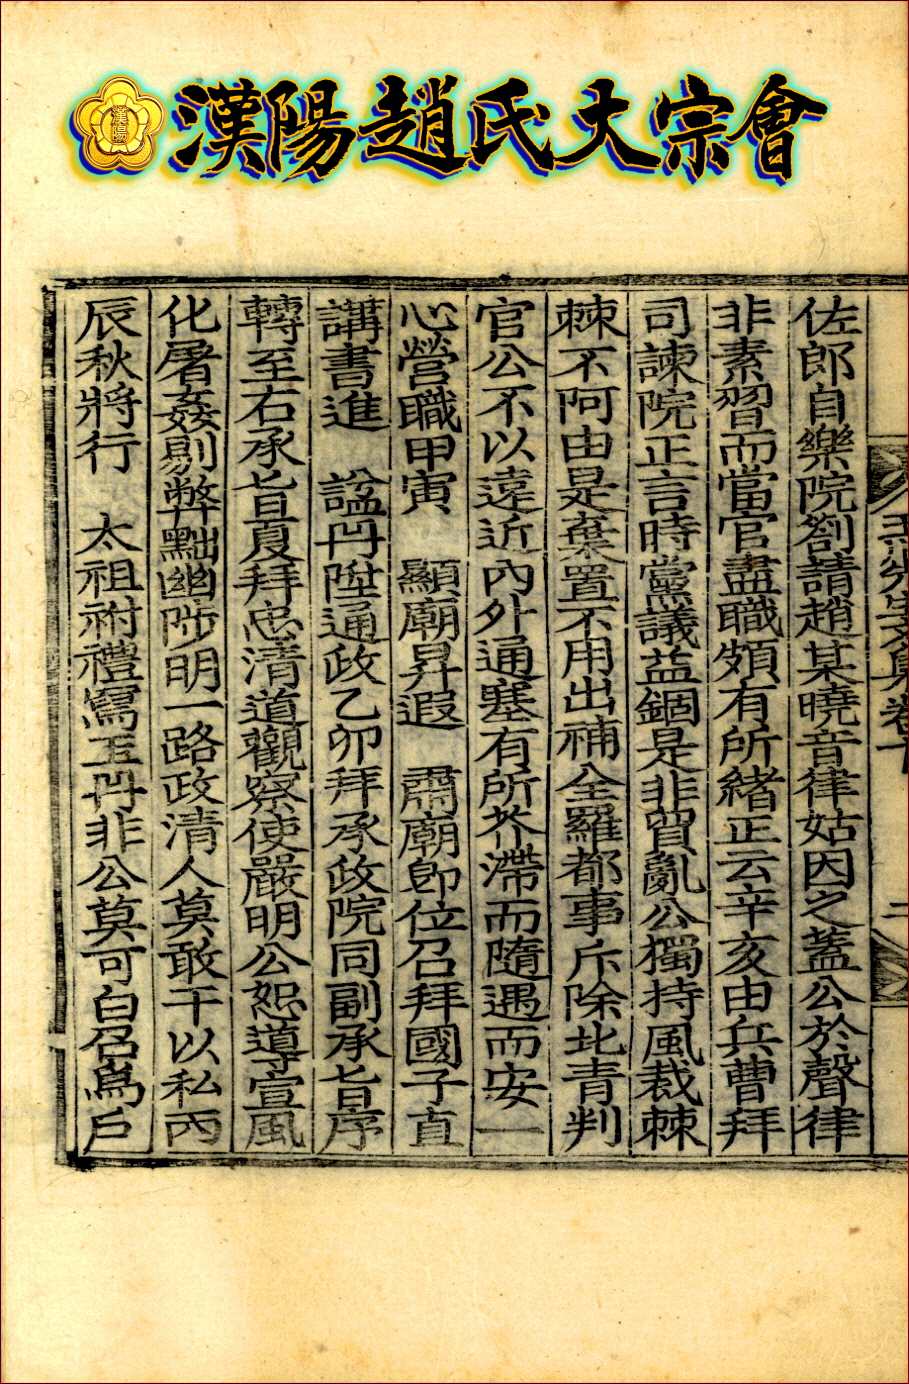 漢陽趙氏大宗會
漢陽
佐郎自樂院劄請趙某曉音律姑因之蓋公於聲律
非素習而當官盡職頗有所緒正云辛亥由兵曹拜
司諫院正言時黨議益錮是非貿亂公獨持風裁棘
棘不阿由是棄置不用出補全羅都事斥除北青判
官公不以遠近內外通塞有所芥滯而隨遇而安一
心營職甲寅 顯廟昇遐 肅廟卽位召拜國子直
講書進 諡冊陞通政乙卯拜承政院同副承旨序
轉至右承旨夏拜忠清道觀察使嚴明公恕導宣風
化屠姦剔弊黜幽陟明一路政清人莫敢干以私丙
辰秋將行 太祖祔禮寫玉冊非公莫可白召爲戶